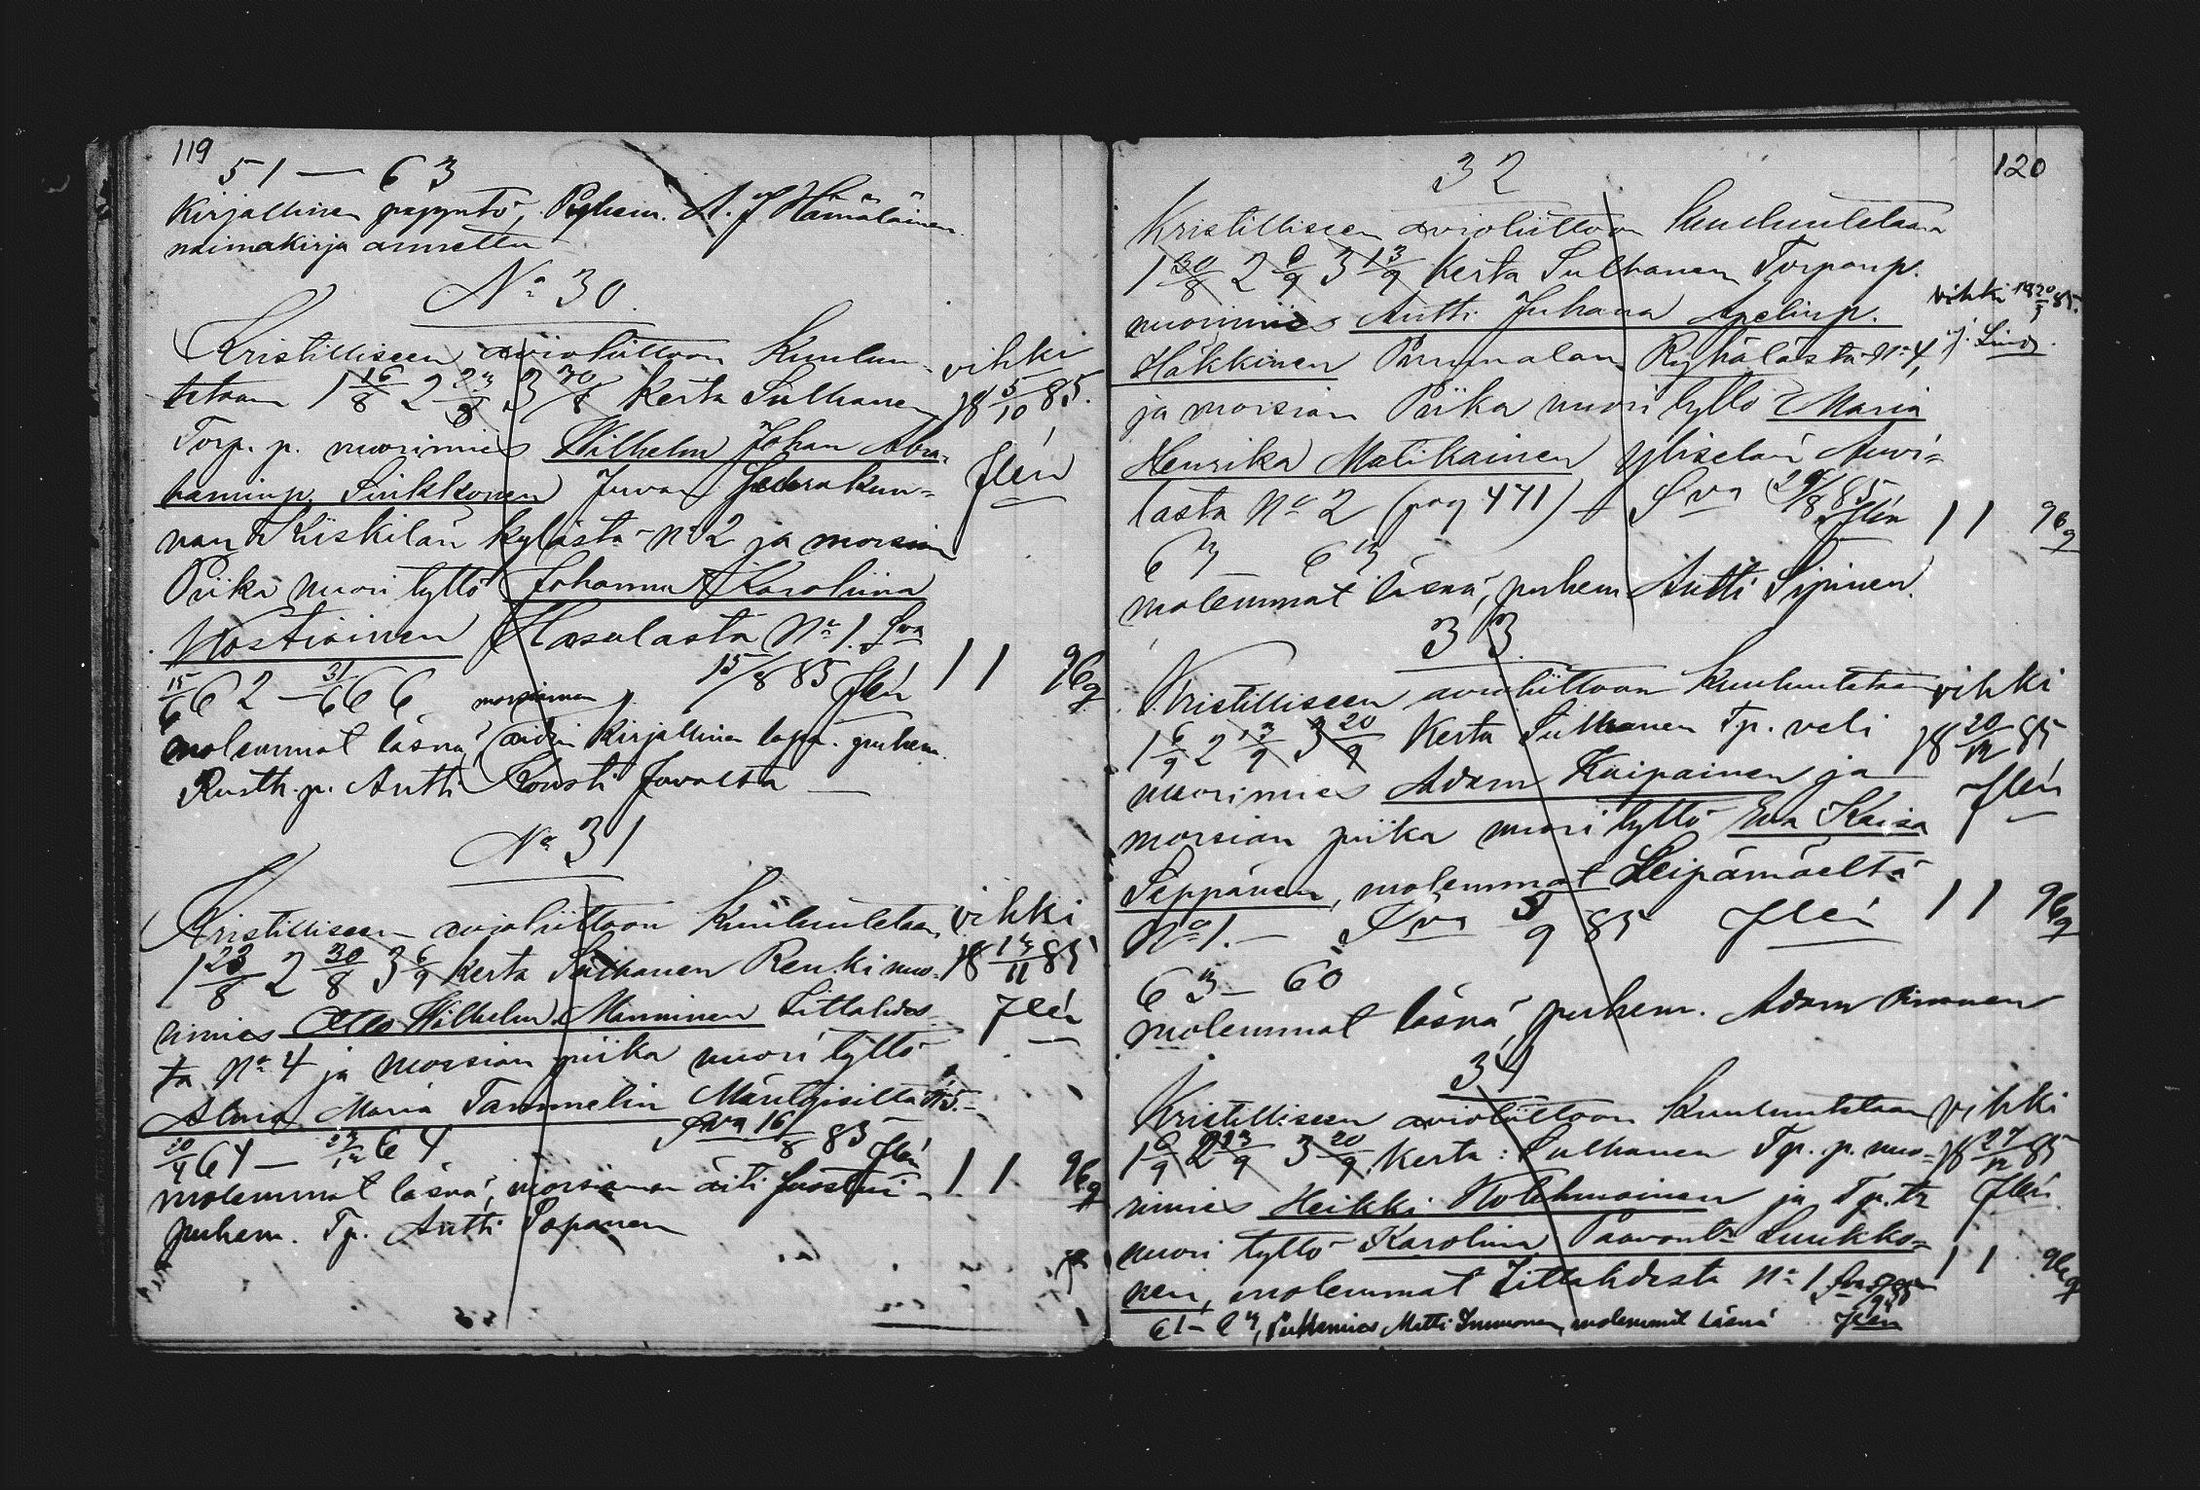 119
51 — 63
Kirjallinen pyyntö, Puhem. A. J Hämäläinen
naimakirja annettu
No 30
Kristilliseen avioliittoon Kuulu-
tetaan 1 16/8 2 23/8 3 30/8 Kerta Sulhanen
Torp. p. nuorimies Wilhelm Johan Abra-
haminp. Sinkkonen Juvan Seurakun-
nan Kiiskilän kylästä No 2 ja morsian
Piika nuori tyttö Johanna Karoliina
Nostiainen Hasulasta No 1. Sva
15/6 62 — 31/6 66 morsiamen 15/8 85 Flén
molemmat läsnä, äidin Kirjallinen lupa. puhem.
Rusth. p. Antti Kousti Juvalta —
vihki
18 5/10 85.
Flén
1 1 96 9
No 31
Kristilliseen avioliittoon Kuulutetaan
1 23/8 2 30/8 3 6/9 Kerta Sulhanen Renki nuo-
rimies Otto Wilhelm Manninen Littlahdes
ta No 4 ja morsian piika nuori tyttö
Alma Maria Tammelin Mäntyisiltä No 5.
20/4 64 — 23/12 64 Sva 16/8 85 Flén
molemmat läsnä, morsiamen äiti suostui —
puhem. Tp. Antti Paponen
vihki
18 13/11 85
Flén
1 1 96 9
120
32
Kristilliseen avioliittoon Kuulutetaan
1 30/8 2 6/9 3 13/9 Kerta Sulhanen Torpanp.
nuorimies Antti Juhana Apelinp.
Häkkinen Parmalan Ryhälästä No 4,
ja morsian Piika nuori tyttö Maria
Henrika Matikainen Yliselän Auvi-
lasta No 2 (pag 471) Sva 29/8 85 Flén
63 — 63
molemmat läsnä, puhem. Antti Sipinen.
vihki 18 20/9 85.
j. Lind.
1 1 96 9
33
Kristilliseen avioliittoon Kuulutetaan
1 6/9 2 13/9 3 20/9 Kerta Sulhanen Tp. veli
nuorimies Adam Kaipainen ja
morsian piika nuori tyttö Eva Kaisa
Seppänen, molemmat Leipämäeltä
No 1. — Sva 5/9 85 Flén
63 — 60
molemmat läsnä, puhem. Adam Immonen
vihki
18 20/12 85
Flén
1 1 96 9
34
Kristilliseen avioliittoon Kuulutetaan
1 6/9 2 13/9 3 20/9 Kerta: Sulhanen Tp. p. nuo-
rimies Heikki Kolehmainen ja Tp. tr
nuori tyttö Karolina Paavont. Luukko-
nen, molemmat Littlahdesta No 1
61 — 64, Puhemies Matti Immonen, molemmat läsnä Flén
vihki
18 27/12 85
Flén
1 1 96 9